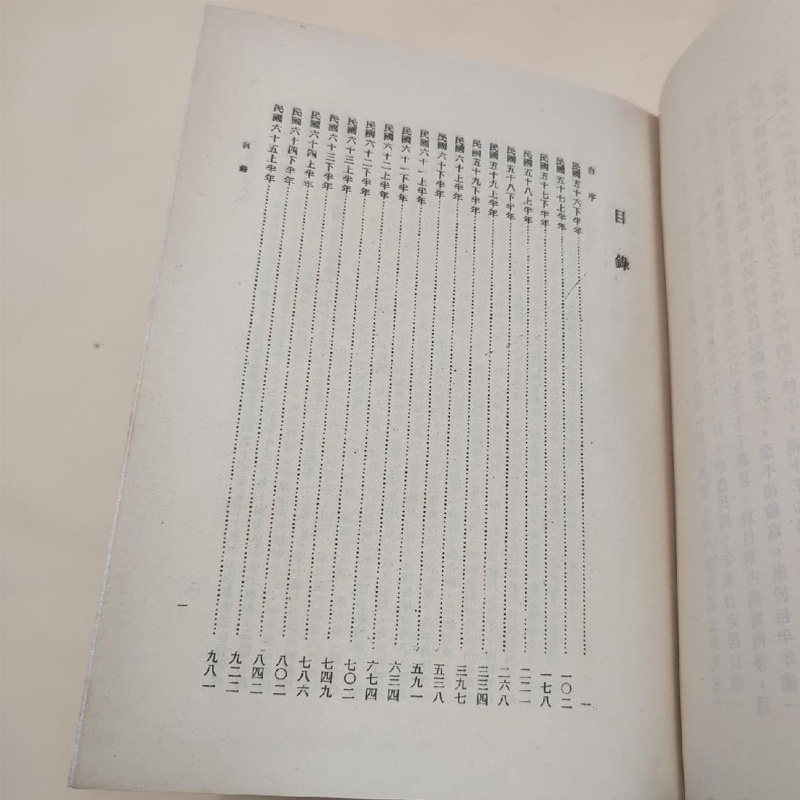 目錄
自序
民國五十六下半年……一
民國五十七上半年……一〇二
民國五十七下半年……一七八
民國五十八上半年……二二一
民國五十八下半年……二六八
民國五十九上半年……三三四
民國五十九下半年……三九七
民國六十上半年……五三八
民國六十下半年……五九一
民國六十一上半年……六三四
民國六十一下半年……六七四
民國六十二上半年……七〇二
民國六十二下半年……七四九
民國六十三上半年……七八六
民國六十三下半年……八〇二
民國六十四上半年……八四二
民國六十四下半年……九二二
民國六十五上半年……九八一
目錄
一